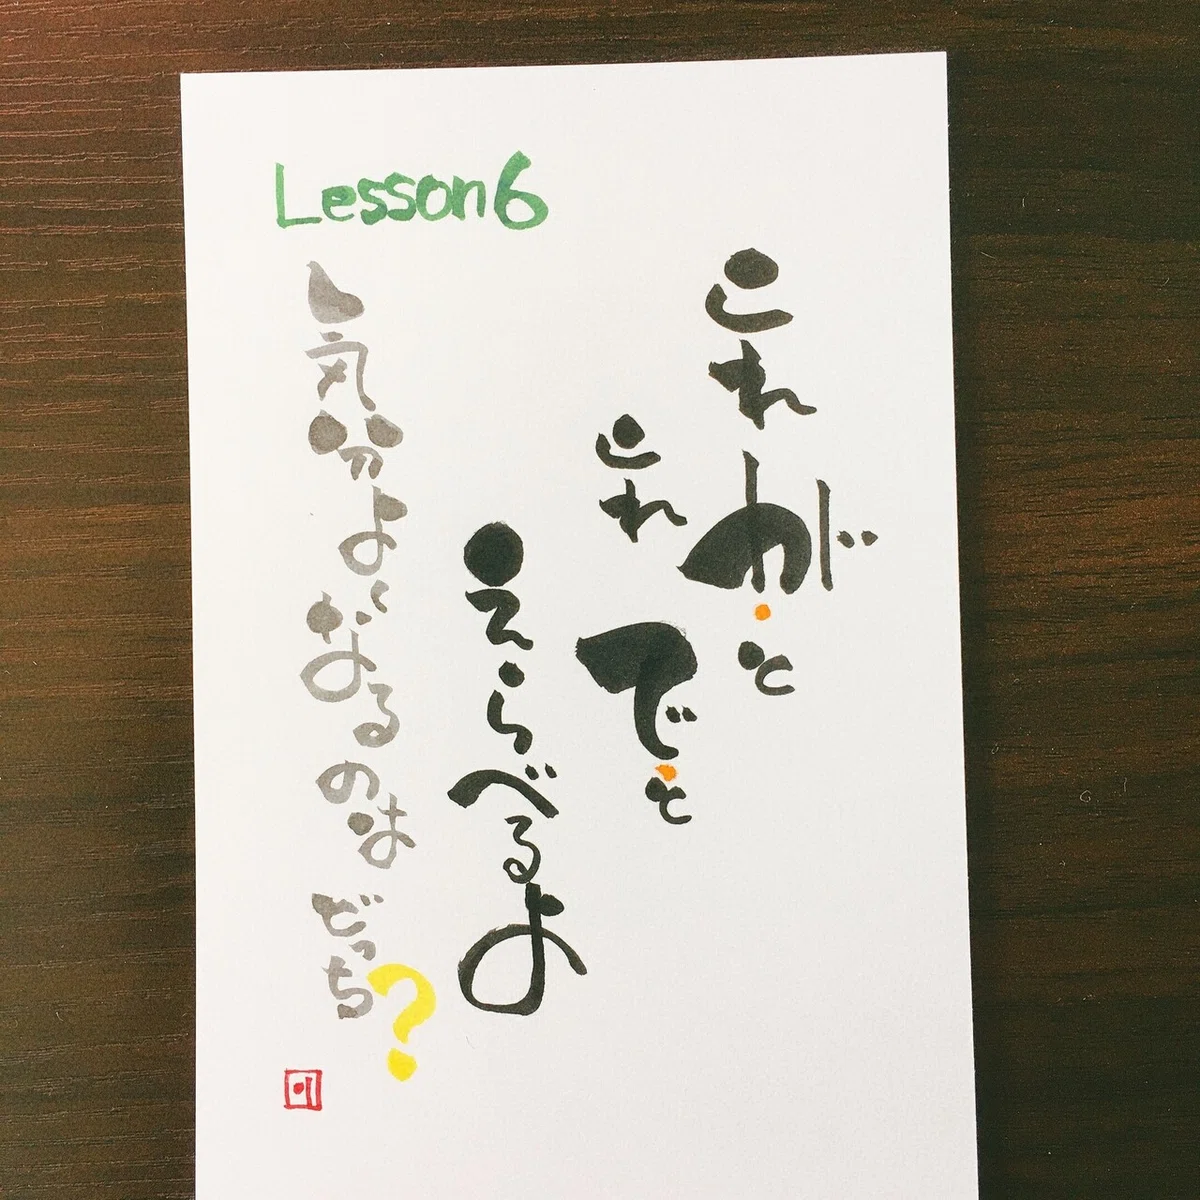 Lesson6
これが・と
これで・と
えらべるよ
気分よくなるのは どっち?